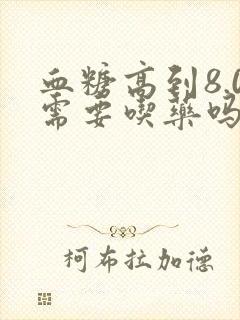 血糖高到8.0
需要喫药吗
柯布拉加德